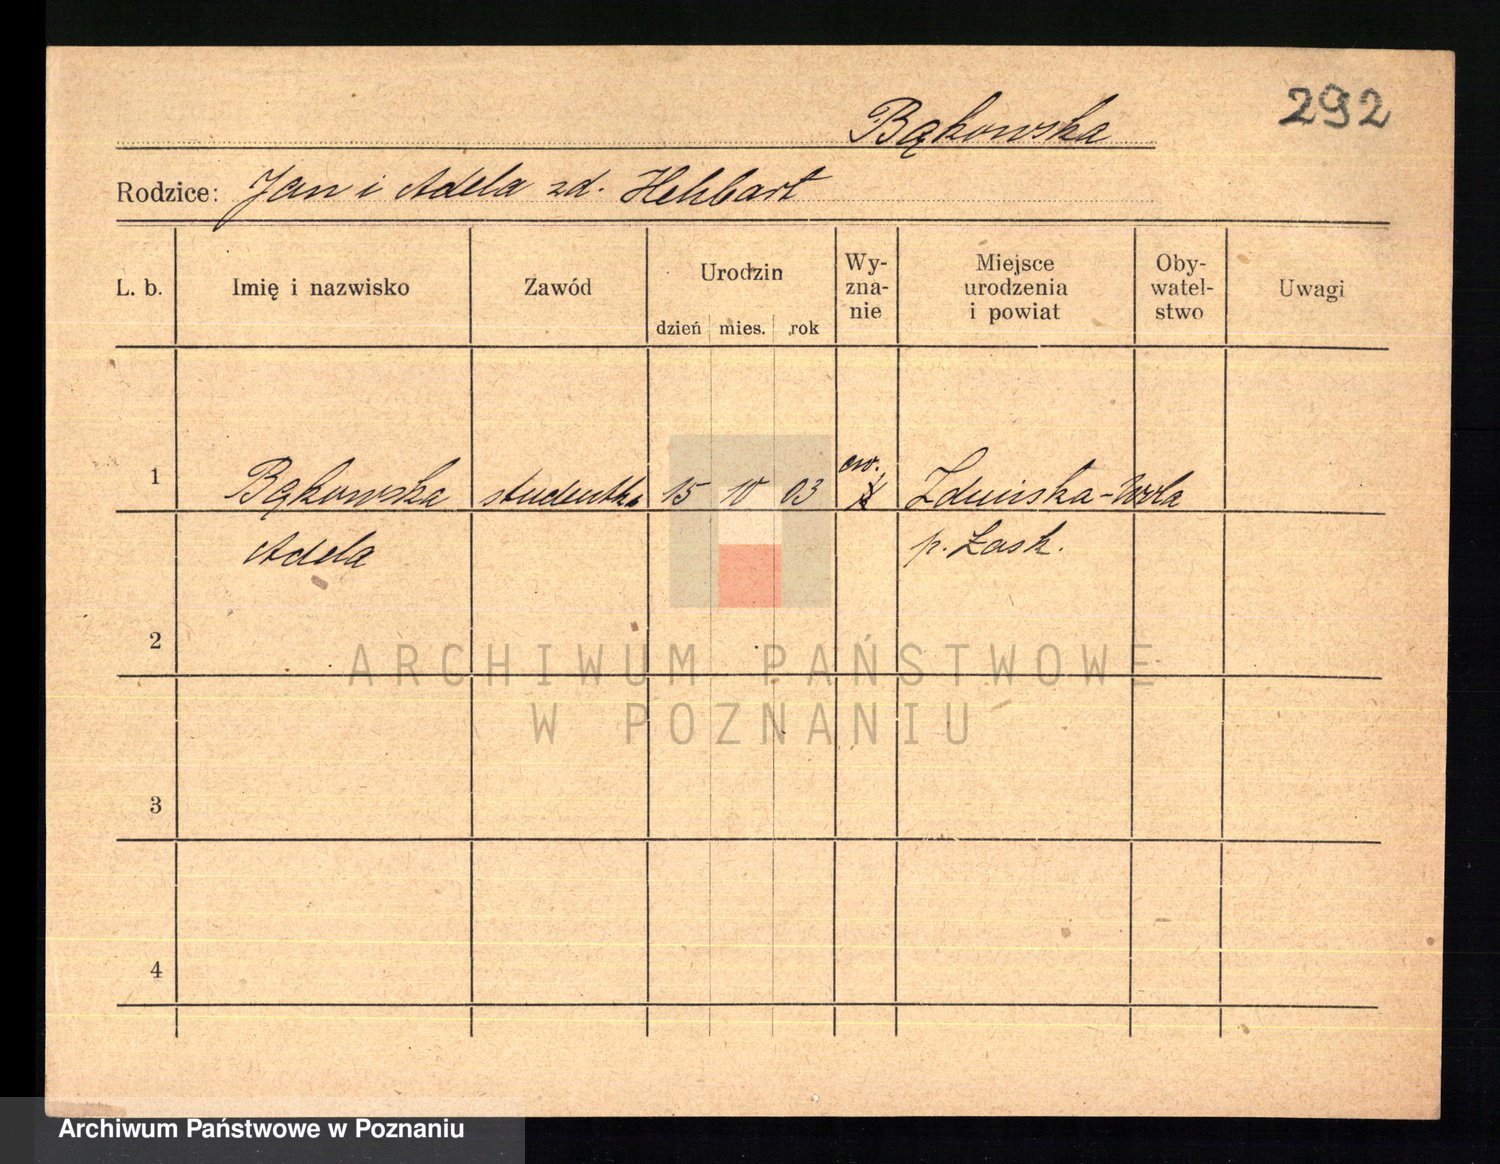 292
Bąkowska
Rodzice: Jan i Adela zd. Hehbart
L. b. Imię i nazwisko Zawód Urodzin Wy-zna-nie Miejsce urodzenia i powiat Oby-watel-stwo Uwagi
dzień mies. rok
1 Bąkowska studentka 15 10 03 ew. Zduńska-Wola
Adela p. Łask.
2
ARCHIWUM PAŃSTWOWE
W POZNANIU
3
4
Archiwum Państwowe w Poznaniu